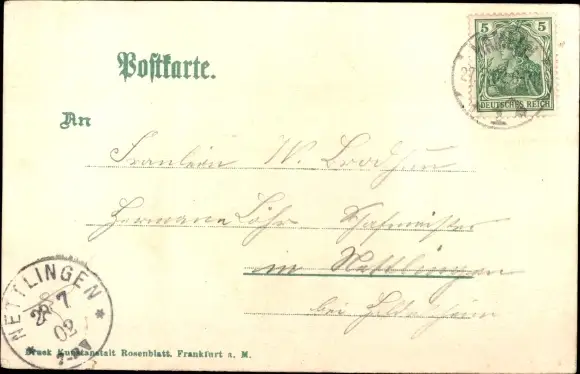 Postkarte.
5 5
DEUTSCHES REICH
An
Fräulein W. Brodthun
Hermann Löhr Schafmeister
in Nettlingen
bei Hildesheim
NETTLINGEN
7
02
Druck Kunstanstalt Rosenblatt, Frankfurt a. M.